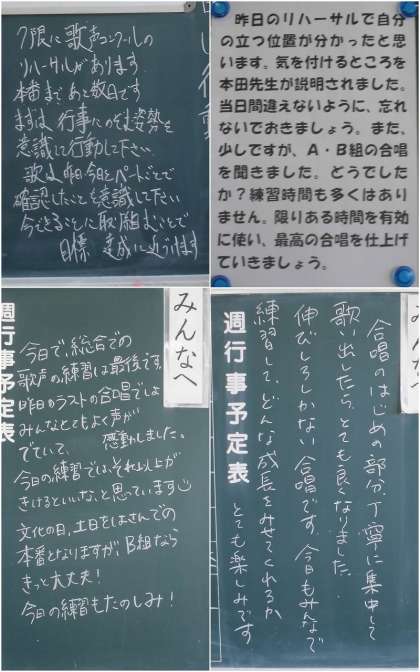 7限に歌声コンクールの
リハーサルがあります
本番まであと数日です
まずは行事にのぞむ姿勢を
意識して行動して下さい
歌は昨日今日とパートごとで
確認したことを意識して下さい
今できることに取り組むことで
目標達成に近づけます
昨日のリハーサルで自分
の立つ位置が分かったと思
います。気を付けるところを
本田先生が説明されました。
当日間違えないように、忘れ
ないでおきましょう。また、
少しですが、A・B組の合唱
を聞きました。どうでした
か？練習時間も多くはあり
ません。限りある時間を有効
に使い、最高の合唱を仕上げ
ていきましょう。
みんなへ
週行事予定表
今日で、総合での
歌声の練習は最後です。
昨日のラストの合唱でしょ
みんなとてもよく声が
でていて、感動しました。
今日の練習では、それ以上が
きけるといいな、と思っています
文化の日、土日をはさんでの
本番となりますが、B組なら
きっと大丈夫！
今日の練習もたのしみ！
合唱のはじめの部分、丁寧に集中して
歌い出したら、とても良くなりました。
伸びしろしかない合唱です。今日もみんなで
練習して、どんな成長をみせてくれるか
とても楽しみです
週行事予定表